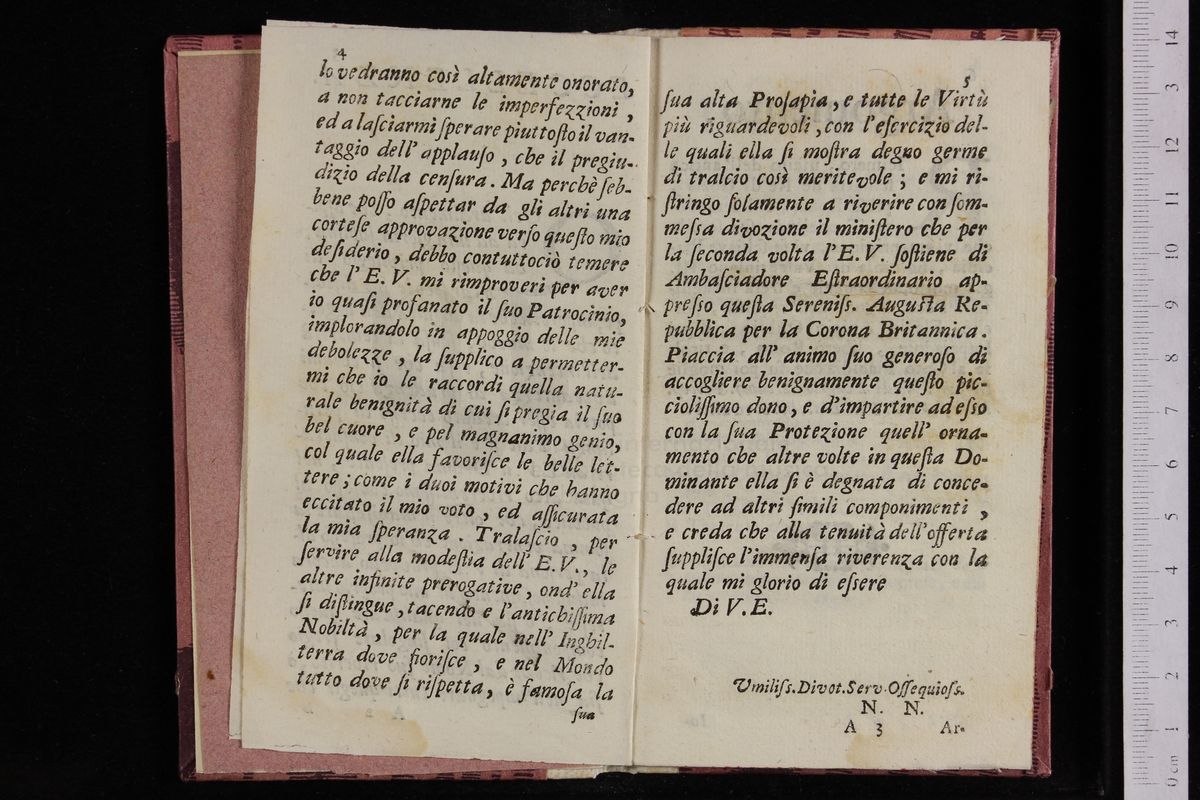 4
lo vedranno così altamente onorato,
a non tacciarne le imperfezzioni ,
ed a laſciarmi ſperare piuttoſto il van-
taggio dell' applauſo , che il pregiu-
dizio della cenſura. Ma perchè ſeb-
bene poſſo aſpettar da gli altri una
corteſe approvazione verſo queſto mio
deſiderio, debbo contuttociò temere
che l' E. V. mi rimproveri per aver
io quaſi profanato il ſuo Patrocinio,
implorandolo in appoggio delle mie
debolezze , la ſupplico a permetter-
mi che io le raccordi quella natu-
rale benignità di cui ſi pregia il ſuo
bel cuore , e pel magnanimo genio,
col quale ella favoriſce le belle let-
tere; come i duoi motivi che hanno
eccitato il mio voto , ed aſſicurata
la mia ſperanza . Tralaſcio , per
ſervire alla modeſtia dell' E.V., le
altre infinite prerogative, ond' ella
ſi diſtingue, tacendo e l'antichiſſima
Nobiltà , per la quale nell' Inghil-
terra dove fioriſce , e nel Mondo
tutto dove ſi riſpetta, è famoſa la
ſua
5
ſua alta Proſapia, e tutte le Virtù
più riguardevoli , con l'eſercizio del-
le quali ella ſi moſtra degno germe
di tralcio così meritevole ; e mi ri-
ſtringo ſolamente a riverire con ſom-
meſsa divozione il miniſtero che per
la ſeconda volta l'E. V. ſoſtiene di
Ambaſciadore Eſtraordinario ap-
preſso queſta Sereniſs. Auguſta Re-
pubblica per la Corona Britannica.
Piaccia all' animo ſuo generoſo di
accogliere benignamente queſto pic-
cioliſſimo dono, e d'impartire ad eſso
con la ſua Protezione quell' orna-
mento che altre volte in queſta Do-
minante ella ſi è degnata di conce-
dere ad altri ſimili componimenti ,
e creda che alla tenuità dell'offerta
ſuppliſce l'immenſa riverenza con la
quale mi glorio di eſsere
Di V. E.
Umiliſs. Divot. Serv. Oſſequioſs.
N. N.
A 3 Ar-
14
3
12
11
10
9
8
7
6
5
4
3
2
1
0 cm